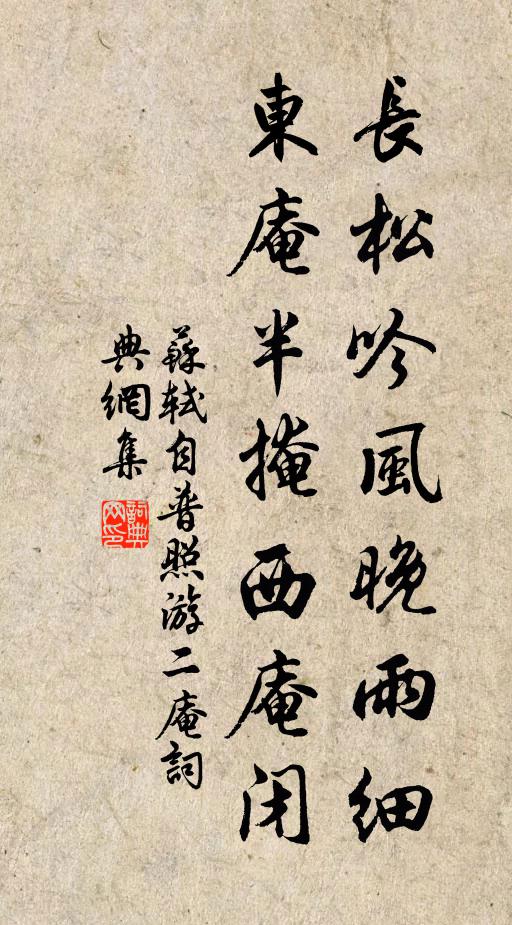 長松吟風晚雨細
東庵半掩西庵閉
蘇軾自普照游二庵詞
典網集
詞典網印